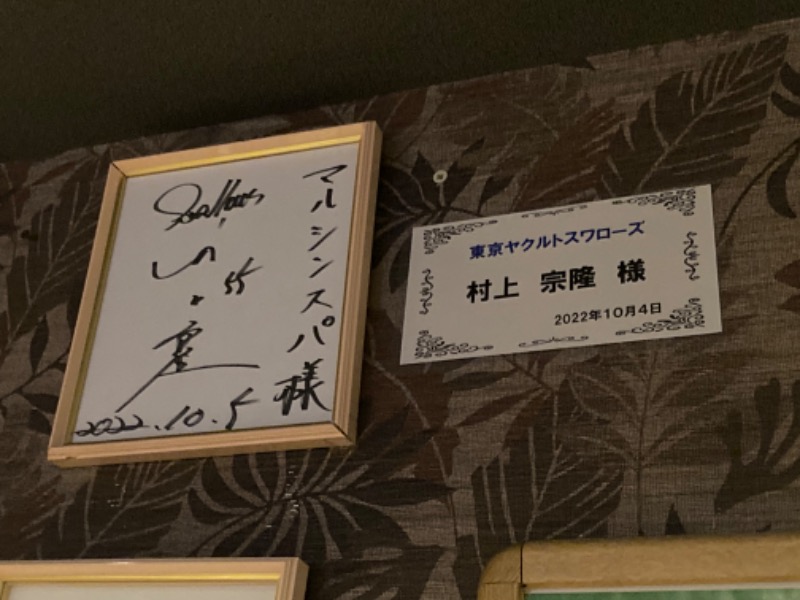 マルシンスパ様
Swallows
55
2022.10.5
東京ヤクルトスワローズ
村上 宗隆 様
2022年10月4日